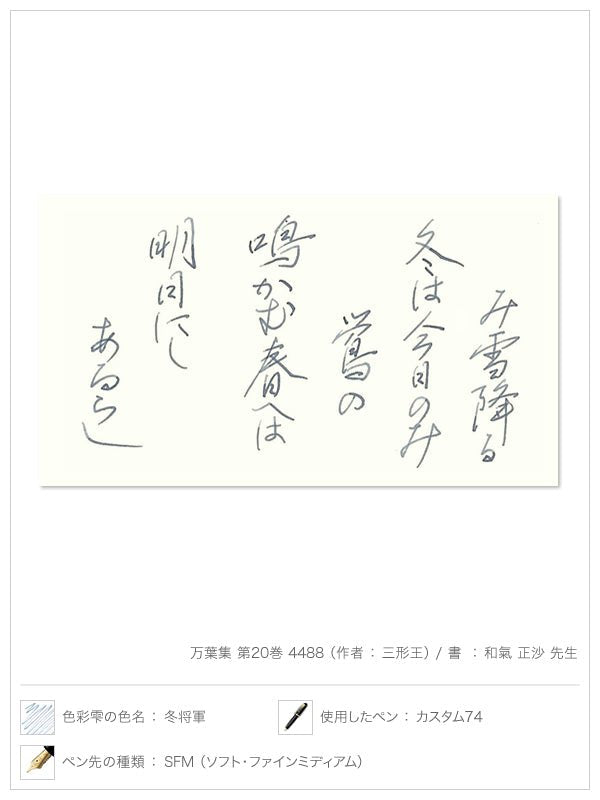 み雪降る
冬は今日のみ
鶯の
鳴かむ春へは
明日にし
あるらし
万葉集 第20巻 4488 （作者 ： 三形王） / 書 ： 和氣 正沙 先生
色彩雫の色名 ： 冬将軍
使用したペン ： カスタム74
ペン先の種類 ： SFM （ソフト・ファインミディアム）